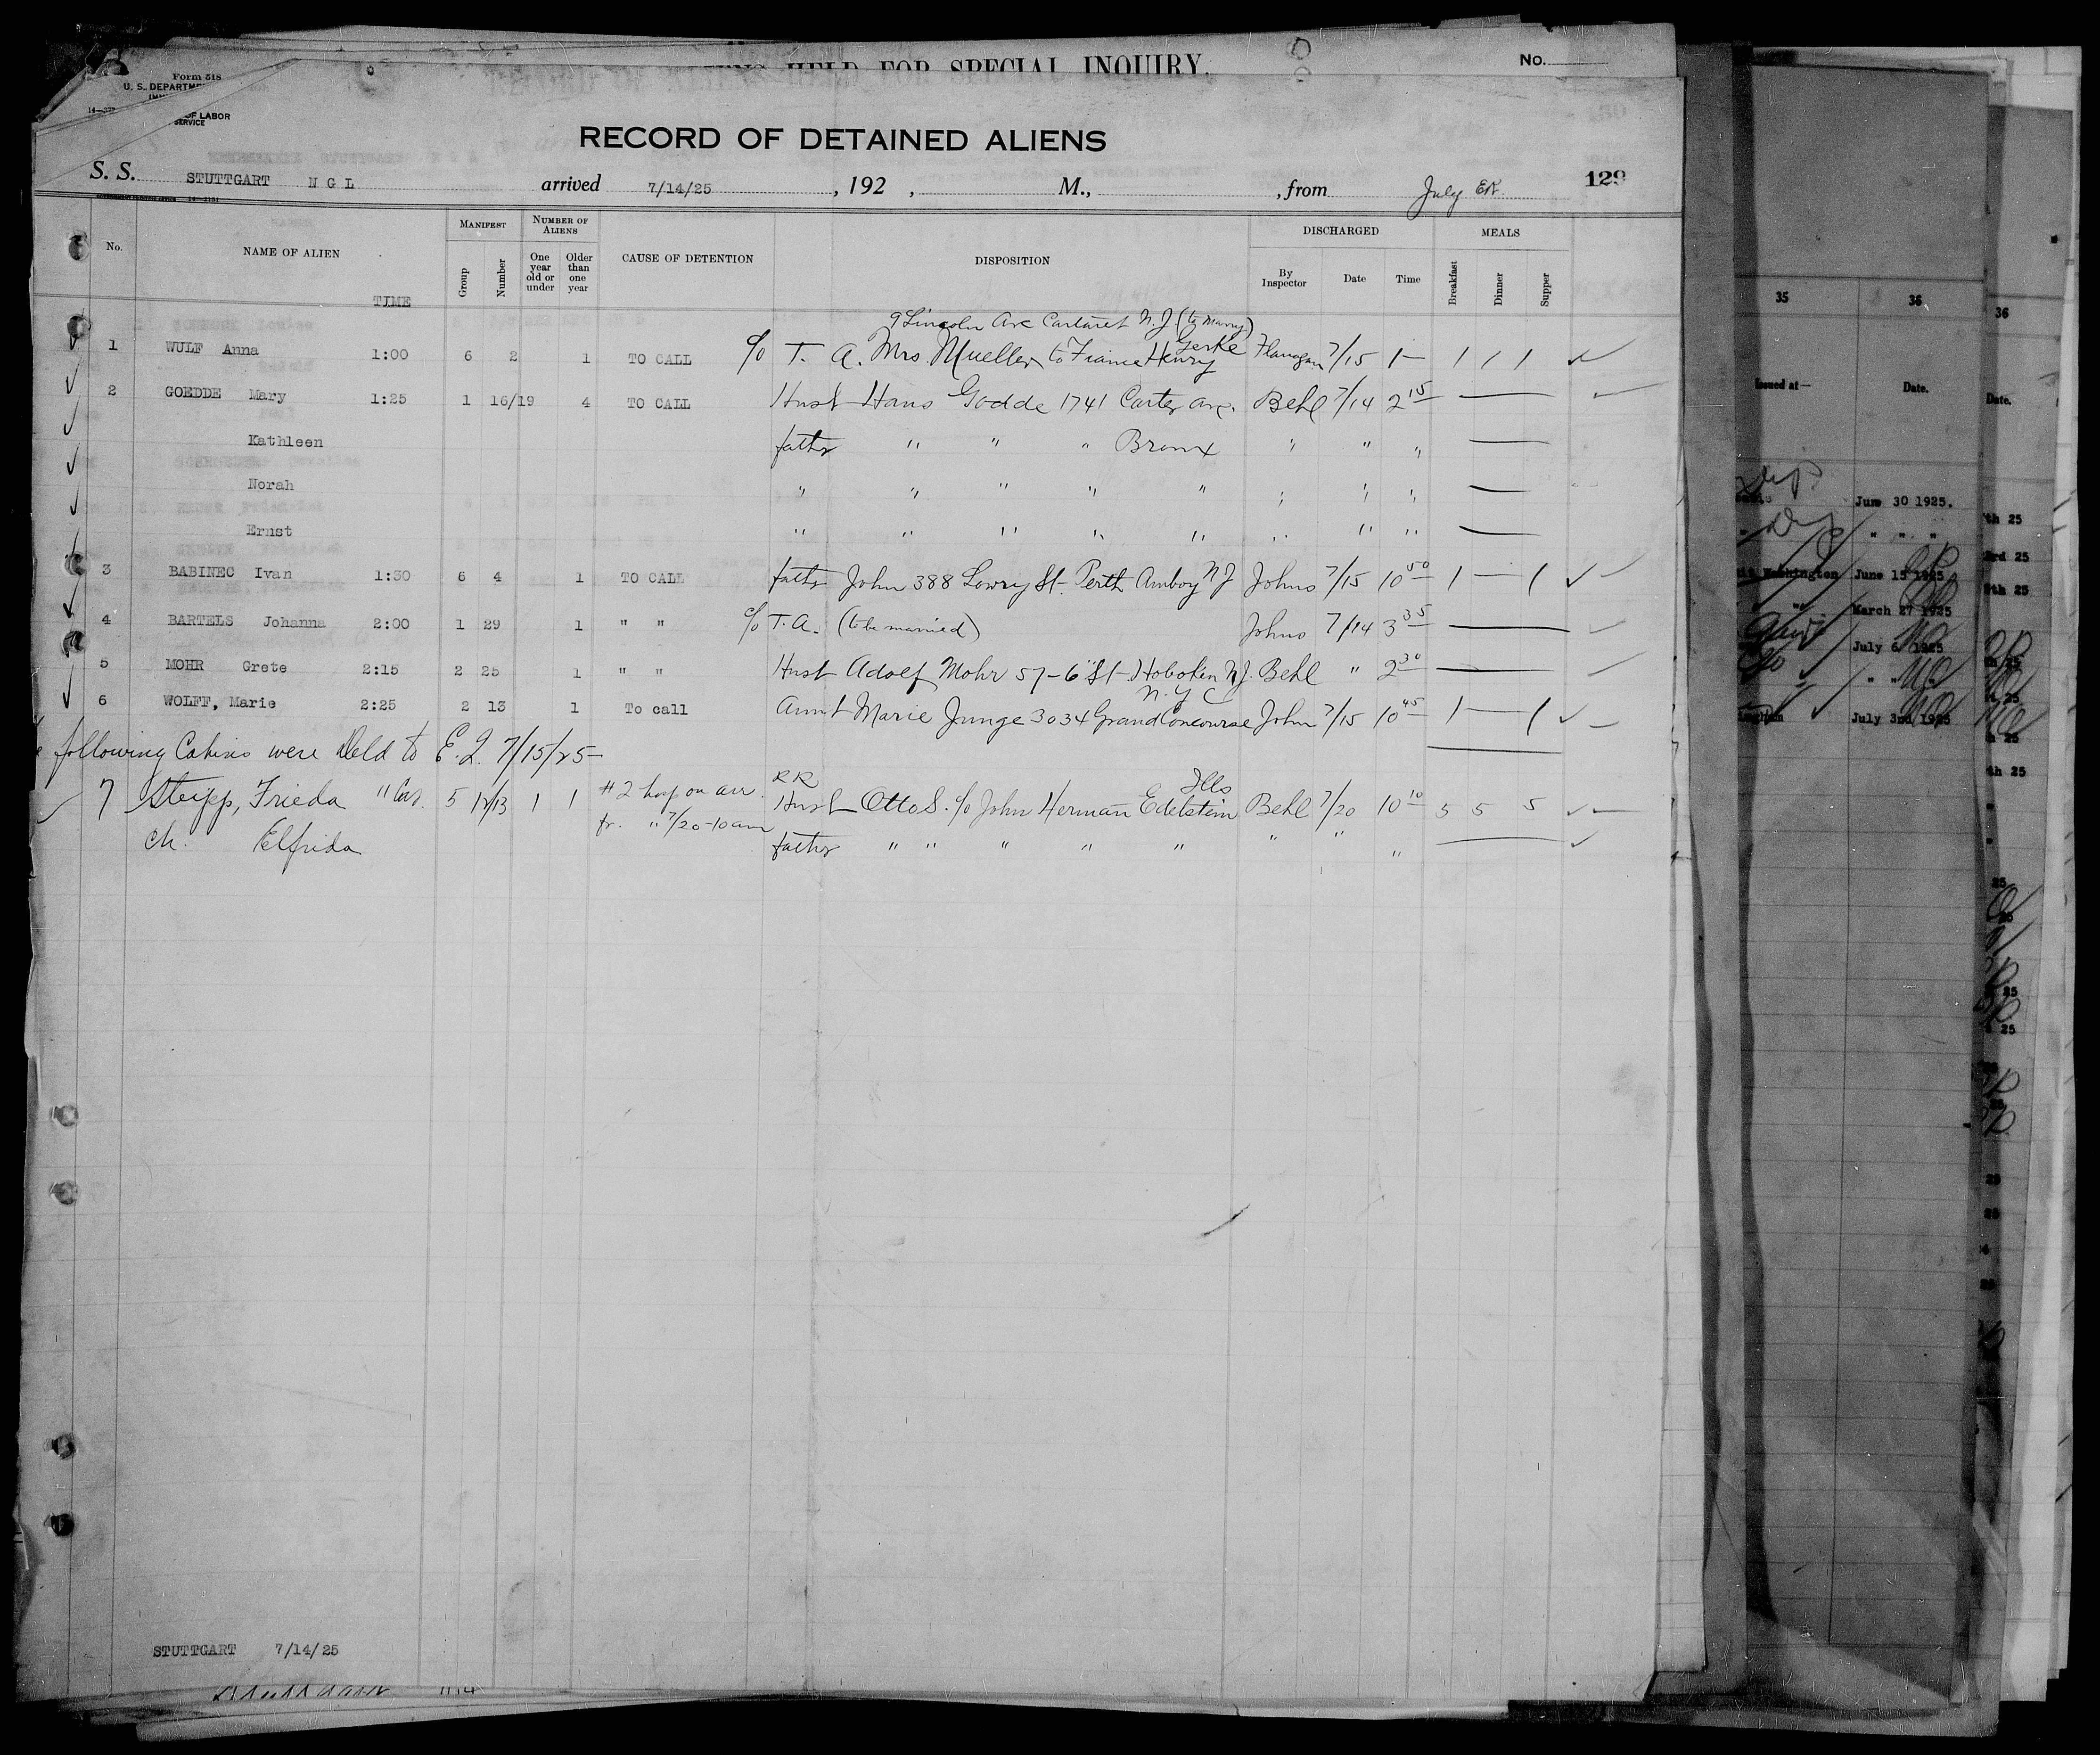 HELD FOR SPECIAL INQUIRY.
No.
Form 518
U. S. DEPARTM
OF LABOR
SERVICE
RECORD OF DETAINED ALIENS
S. S. STUTTGART N G L arrived 7/14/25, 192 , M., , from July 129
No. NAME OF ALIEN TIME MANIFEST Group Number NUMBER OF ALIENS One year old or under Older than one year CAUSE OF DETENTION DISPOSITION DISCHARGED By Inspector Date Time MEALS Breakfast Dinner Supper
9 Lincoln Ave Carteret N.J. (to marry)
1 WULF Anna 1:00 6 2 1 TO CALL c/o T. A. Mrs Mueller to Fiance Henry Gerke Flanagan 7/15 1— 1 1 1 ✓
2 GOEDDE Mary 1:25 1 16/19 4 TO CALL Husb Hans Godde 1741 Carter Ave. Behl 7/14 2 15 —
Kathleen father " " " Bronx " " " —
Norah " " " " " " " " —
Ernst " " " " " " " " —
3 BABINEC Ivan 1:30 6 4 1 TO CALL father John 388 Lowry St. Perth Amboy N J Johns 7/15 10 50 1 — 1 ✓
4 BARTELS Johanna 2:00 1 29 1 " " c/o T. A. (to be married) Johns 7/14 3 35 —
5 MOHR Grete 2:15 2 25 1 " " Husb Adolf Mohr 57-6" St. Hoboken N.J. Behl " 2 30 —
N.Y.C
6 WOLFF, Marie 2:25 2 13 1 To call Aunt Marie Junge 3034 Grand Concourse John 7/15 10 45 1 — 1 ✓
following Cabins were held to E. I. 7/15/25 —
7 Steipp, Frieda " Cab. 5 12/13 1 1 #2 hosp on arr. RR Husb Otto S. c/o John Herman Edelstein Ills Behl 7/20 10 10 5 5 5 ✓
fr. " 7/20-10am
ch. Elfrida father " " " " " " " " — ✓
STUTTGART 7/14/25
35 36
Issued at— Date.
June 30 1925.
" " "
Washington June 15 1925
" March 27 1925
July 6 1925
" "
July 3rd 1925
36
Date.